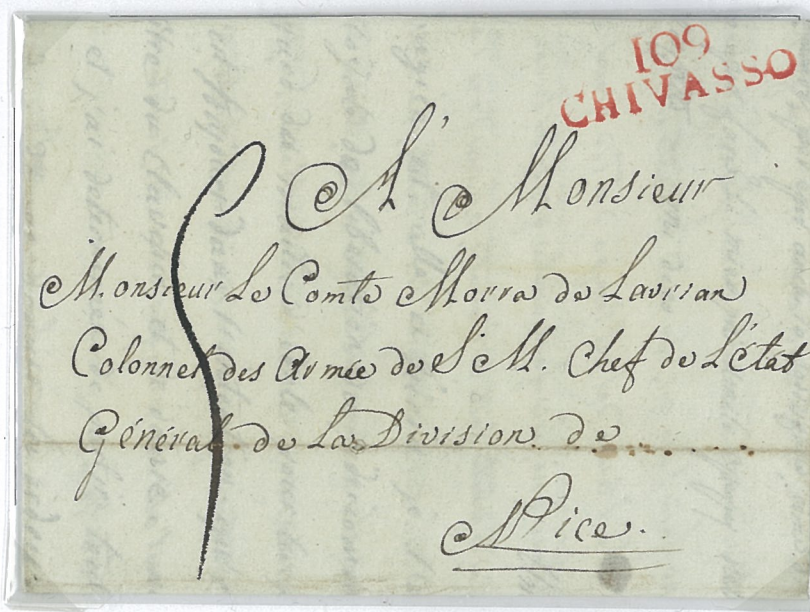 109
CHIVASSO
A Monsieur
Monsieur Le Comte Morra de Lavrian
Colonnel des Armée de S. M. Chef de L'état
Général de La Division de ........
Nice.